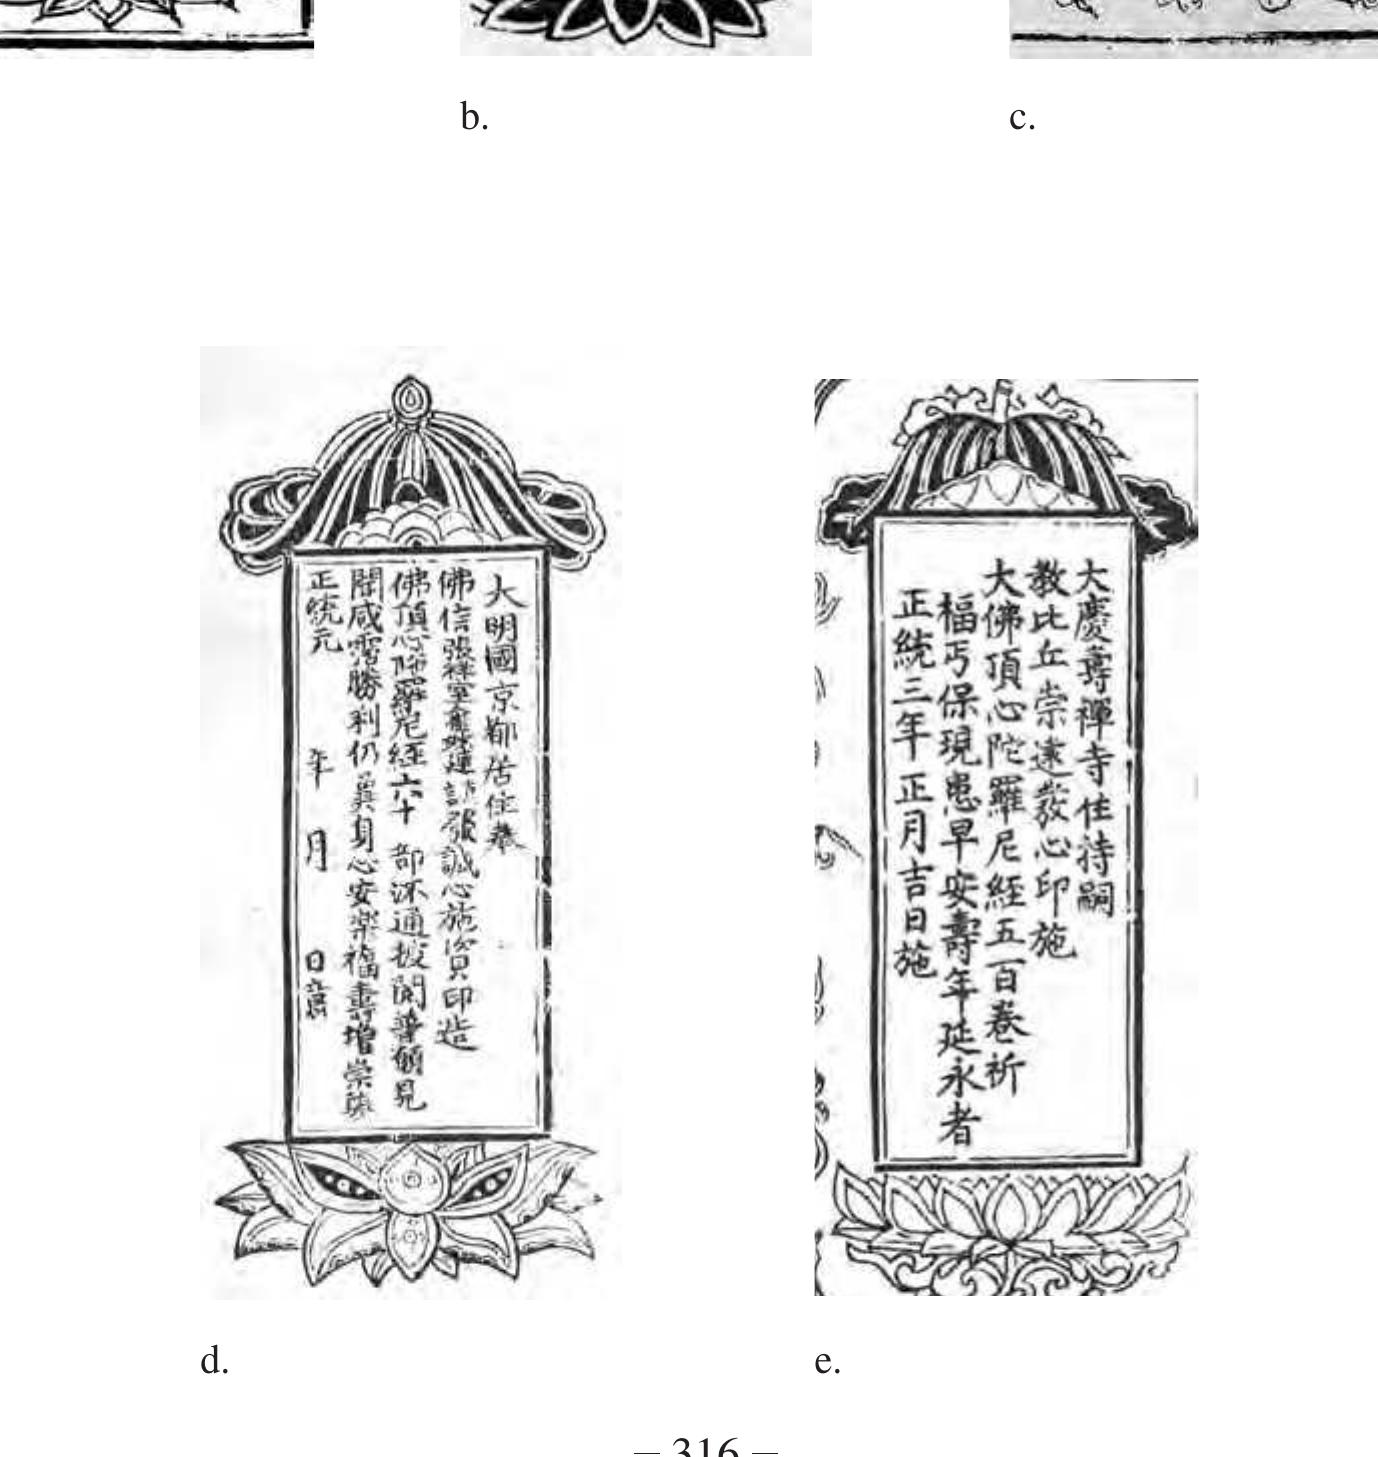 b.
c.
大明國京都居住奉
佛信張祥室
發誠心施資印造
佛頂心陀羅尼經六十 部流通披閱普願見
聞咸霑勝利仍冀身心安樂福壽增崇
正統元 年 月 日意
大慶壽禪寺住持嗣
教比丘崇遠發心印施
大佛頂心陀羅尼經五百卷祈
福丐保現患早安壽年延永者
正統三年正月吉日施
d.
e.
– 316 –